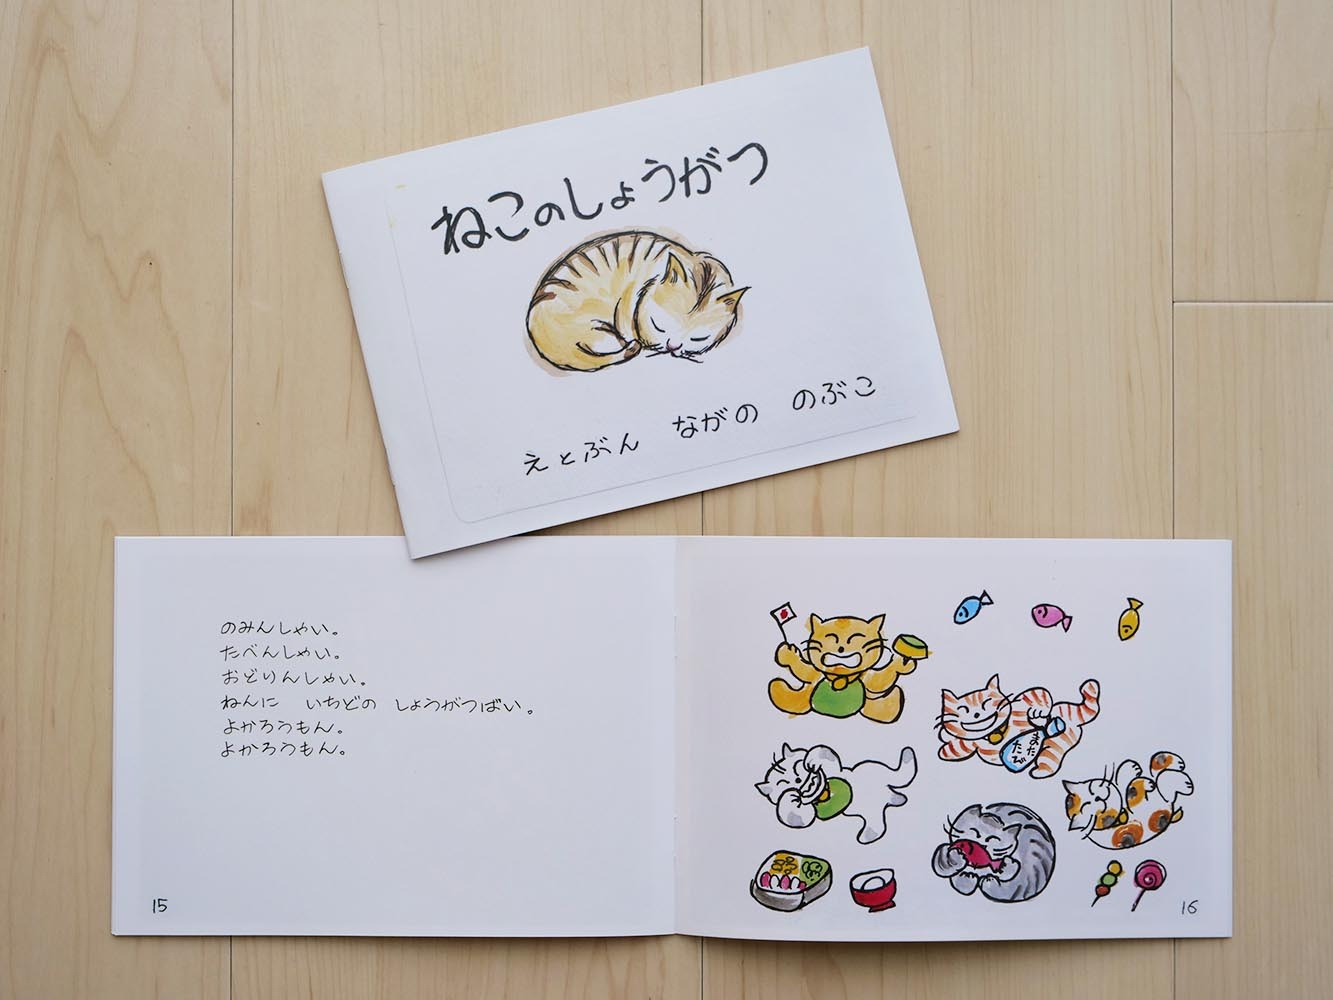 ねこのしょうがつ
えとぶん ながの のぶこ
のみんしゃい。
たべんしゃい。
おどりんしゃい。
ねんに いちどの しょうがつばい。
よかろうもん。
よかろうもん。
15
またたび
16